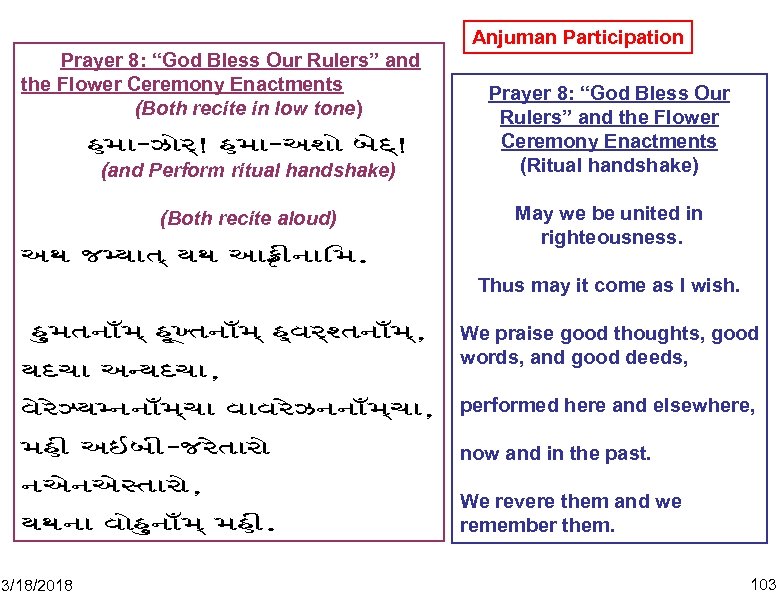 Anjuman Participation
Prayer 8: “God Bless Our Rulers” and
the Flower Ceremony Enactments
(Both recite in low tone)
હમા-ઝોર્! હમા-અશો બેદ્!
(and Perform ritual handshake)
(Both recite aloud)
અથ જમ્યાત્ યથ આફ્રીનામિ.
હુમતનાઁમ્ હૂખ્તનાઁમ્ હ્વર્શ્તનાઁમ્,
યદચા અન્યદચા,
વેરેઝ્યમ્નનાઁમ્ચા વાવરેઝનનાઁમ્ચા,
મહી અઈબી-જરેતારો
નએનએસ્તારો,
યથના વોહુનાઁમ્ મહી.
Prayer 8: “God Bless Our
Rulers” and the Flower
Ceremony Enactments
(Ritual handshake)
May we be united in
righteousness.
Thus may it come as I wish.
We praise good thoughts, good
words, and good deeds,
performed here and elsewhere,
now and in the past.
We revere them and we
remember them.
3/18/2018
103